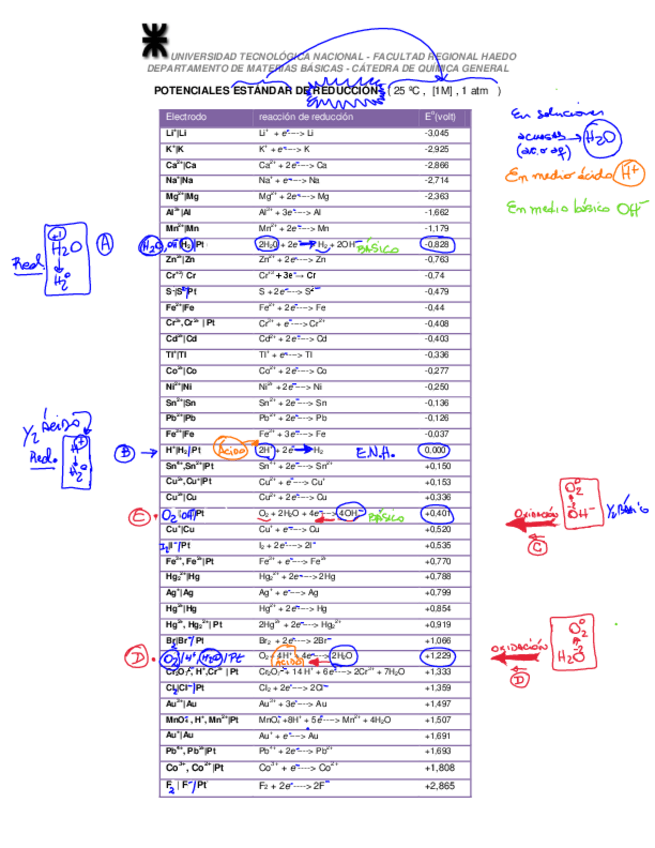 UNIVERSIDAD TECNOLÓGICA NACIONAL - FACULTAD REGIONAL HAEDO
DEPARTAMENTO DE MATERIAS BÁSICAS - CÁTEDRA DE QUÍMICA GENERAL
POTENCIALES ESTÁNDAR DE REDUCCIÓN ( 25 ºC , [1M] , 1 atm )
En soluciones
acuosas → H2O
(ac. o aq)
En medio ácido H+
En medio básico OH-
Electrodo reacción de reducción E0(volt)
Li+|Li Li+ + e- ---> Li -3,045
K+|K K+ + e- ---> K -2,925
Ca2+|Ca Ca2+ + 2e- ---> Ca -2,866
Na+|Na Na+ + e- ---> Na -2,714
Mg2+|Mg Mg2+ + 2e- ---> Mg -2,363
Al3+|Al Al3+ + 3e- ---> Al -1,662
Mn2+|Mn Mn2+ + 2e- ---> Mn -1,179
A H2O, OH-|H2|Pt 2H2O + 2e- → H2 + 2OH- BÁSICO -0,828
Red. +1 H2O ↓ H2 0
Zn2+|Zn Zn2+ + 2e- ---> Zn -0,763
Cr3+|Cr Cr+3 + 3e- ---> Cr -0,74
S|S2-|Pt S + 2e- ---> S2- -0,479
Fe2+|Fe Fe2+ + 2e- ---> Fe -0,44
Cr3+,Cr2+ | Pt Cr3+ + e- ---> Cr2+ -0,408
Cd2+|Cd Cd2+ + 2e- ---> Cd -0,403
Tl+|Tl Tl+ + e- ---> Tl -0,336
Co2+|Co Co2+ + 2e- ---> Co -0,277
Ni2+|Ni Ni2+ + 2e- ---> Ni -0,250
Sn2+|Sn Sn2+ + 2e- ---> Sn -0,136
Pb2+|Pb Pb2+ + 2e- ---> Pb -0,126
Fe3+|Fe Fe3+ + 3e- ---> Fe -0,037
Y2 Ácido
Red. H+ ↓ H2 0
B → H+|H2|Pt Ácido 2H+ + 2e- → H2 E.N.H. 0,000
Sn4+,Sn2+|Pt Sn4+ + 2e- ---> Sn2+ +0,150
Cu2+,Cu+|Pt Cu2+ + e- ---> Cu+ +0,153
Cu2+|Cu Cu2+ + 2e- ---> Cu 0,336
E O2|OH-|Pt O2 + 2H2O + 4e- ---> 4OH- BÁSICO +0,401
OXIDACIÓN C O2 0 OH- Y2 BÁSICO
Cu+|Cu Cu+ + e- ---> Cu +0,520
I2|I-|Pt I2 + 2e- ---> 2I- +0,535
Fe3+, Fe2+|Pt Fe3+ + e- ---> Fe2+ +0,770
Hg2 2+|Hg Hg2 2+ + 2e- ---> 2Hg +0,788
Ag+|Ag Ag+ + e- ---> Ag +0,799
Hg2+|Hg Hg2+ + 2e- ---> Hg +0,854
Hg2+, Hg2 2+| Pt 2Hg2+ + 2e- ---> Hg2 2+ +0,919
Br2|Br-|Pt Br2 + 2e- ---> 2Br- +1,066
D O2/H+, H2O/Pt O2 + 4H+ + 4e- ---> 2H2O ÁCIDO +1,229
OXIDACIÓN D O2 0 H2O -2
Cr2O7=, H+,Cr3+ | Pt Cr2O7= + 14 H+ + 6 e- ---> 2Cr3+ + 7H2O +1,333
Cl2|Cl-|Pt Cl2 + 2e- ---> 2Cl- +1,359
Au3+|Au Au3+ + 3e- ---> Au +1,497
MnO4-, H+, Mn2+|Pt MnO4- +8H+ + 5 e- ---> Mn2+ + 4H2O +1,507
Au+|Au Au+ + e- ---> Au +1,691
Pb4+, Pb2+|Pt Pb4+ + 2e- ---> Pb2+ +1,693
Co3+, Co2+|Pt Co3+ + e- ---> Co2+ +1,808
F2 | F-/Pt F2 + 2e- ---> 2F- +2,865